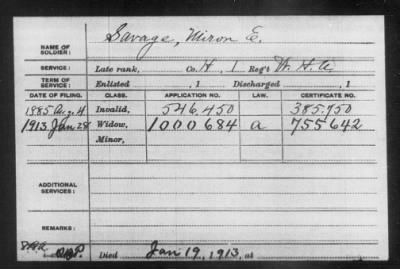 NAME OF SOLDIER: Savage, Miron E.
SERVICE: Late rank, Co. H, 1 Reg't
TERM OF SERVICE: Enlisted , 1 Discharged , 1
DATE OF FILING. CLASS. APPLICATION NO. LAW. CERTIFICATE NO.
1885 Aug. 4 Invalid, 546.450 385.950
1913 Jan 28 Widow, 1000684 a 755642
Minor,
ADDITIONAL SERVICES:
REMARKS:
Died Jan 19, 1913, at